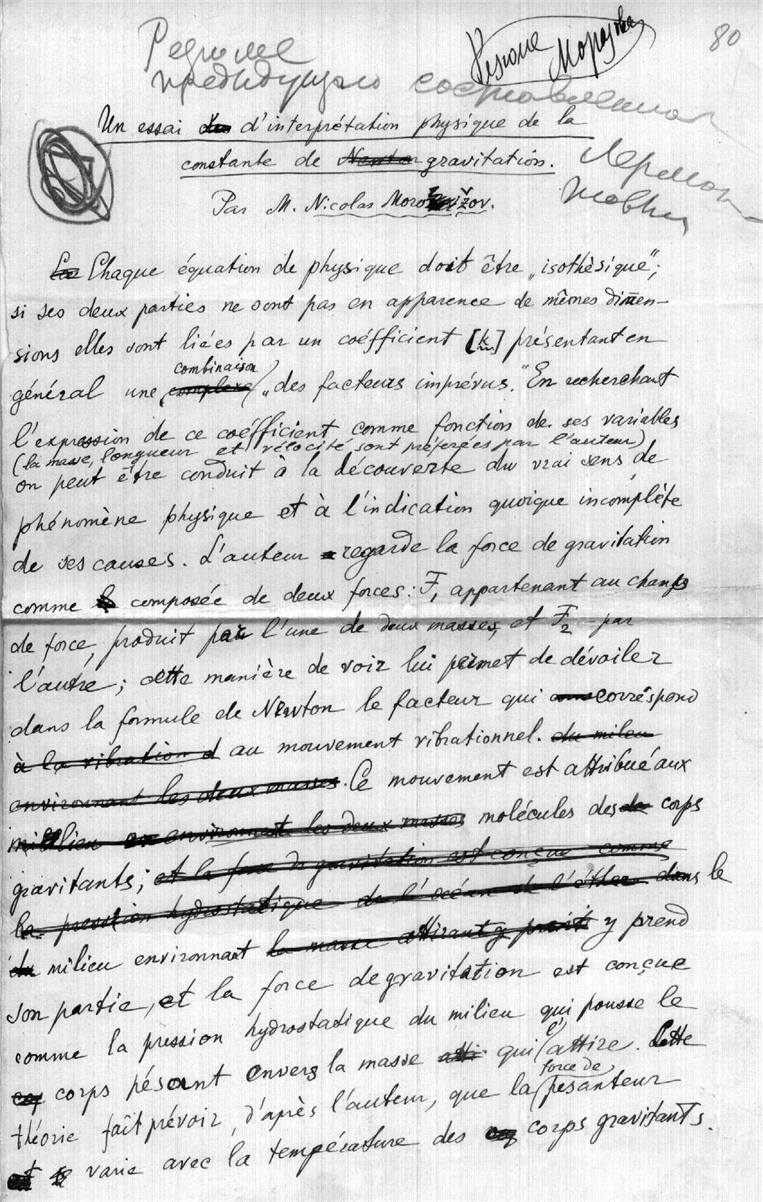 80
Резюме
Резюме Морозова
предыдущего
Un essai d'interprétation physique de la
constante de Newton gravitation.
Par M. Nicolas Morožov.
Chaque équation de physique doit être „isothésique";
si ses deux parties ne sont pas en apparence de mêmes dimen-
sions elles sont liées par un coéfficient [k] présentant en
combinaison
général une complexe „des facteurs imprévus." En recherchant
l'expression de ce coéfficient comme fonction de ses variables
(la masse, longueur et vélocité sont préferées par l'auteur)
on peut être conduit à la découverte du vrai sens de
phénomène physique et à l'indication quoique incomplète
de ses causes. L'auteur regarde la force de gravitation
comme composée de deux forces: F, appartenant au champ
de force, produit par l'une de deux masses, et F2 - par
l'autre; cette manière de voir lui permet de dévoiler
dans la formule de Newton le facteur qui correspond
à la vibration d au mouvement vibrationnel. du milieu
environnant les deux masses. Ce mouvement est attribué aux
milieu environnant les deux masses molécules des de corps
gravitants; et la force de gravitation est conçue comme
la pression hydrostatique de l'océan de l'éther dans le
du milieu environnant la masse attirant y prend
son partie, et la force de gravitation est conçue
comme la pression hydrostatique du milieu qui pousse le
corps pésant envers la masse atti qui l'attire. Cette
force de
théorie fait prévoir, d'après l'auteur, que la pesanteur
varie avec la température des corps gravitants.